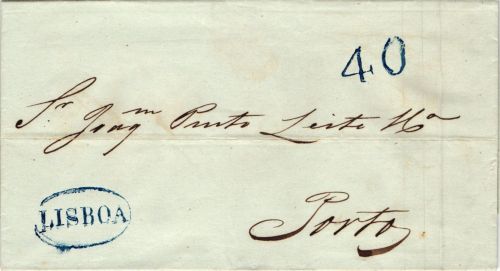 40
Sr. Joaqm Pinto Leite
LISBOA
Porto